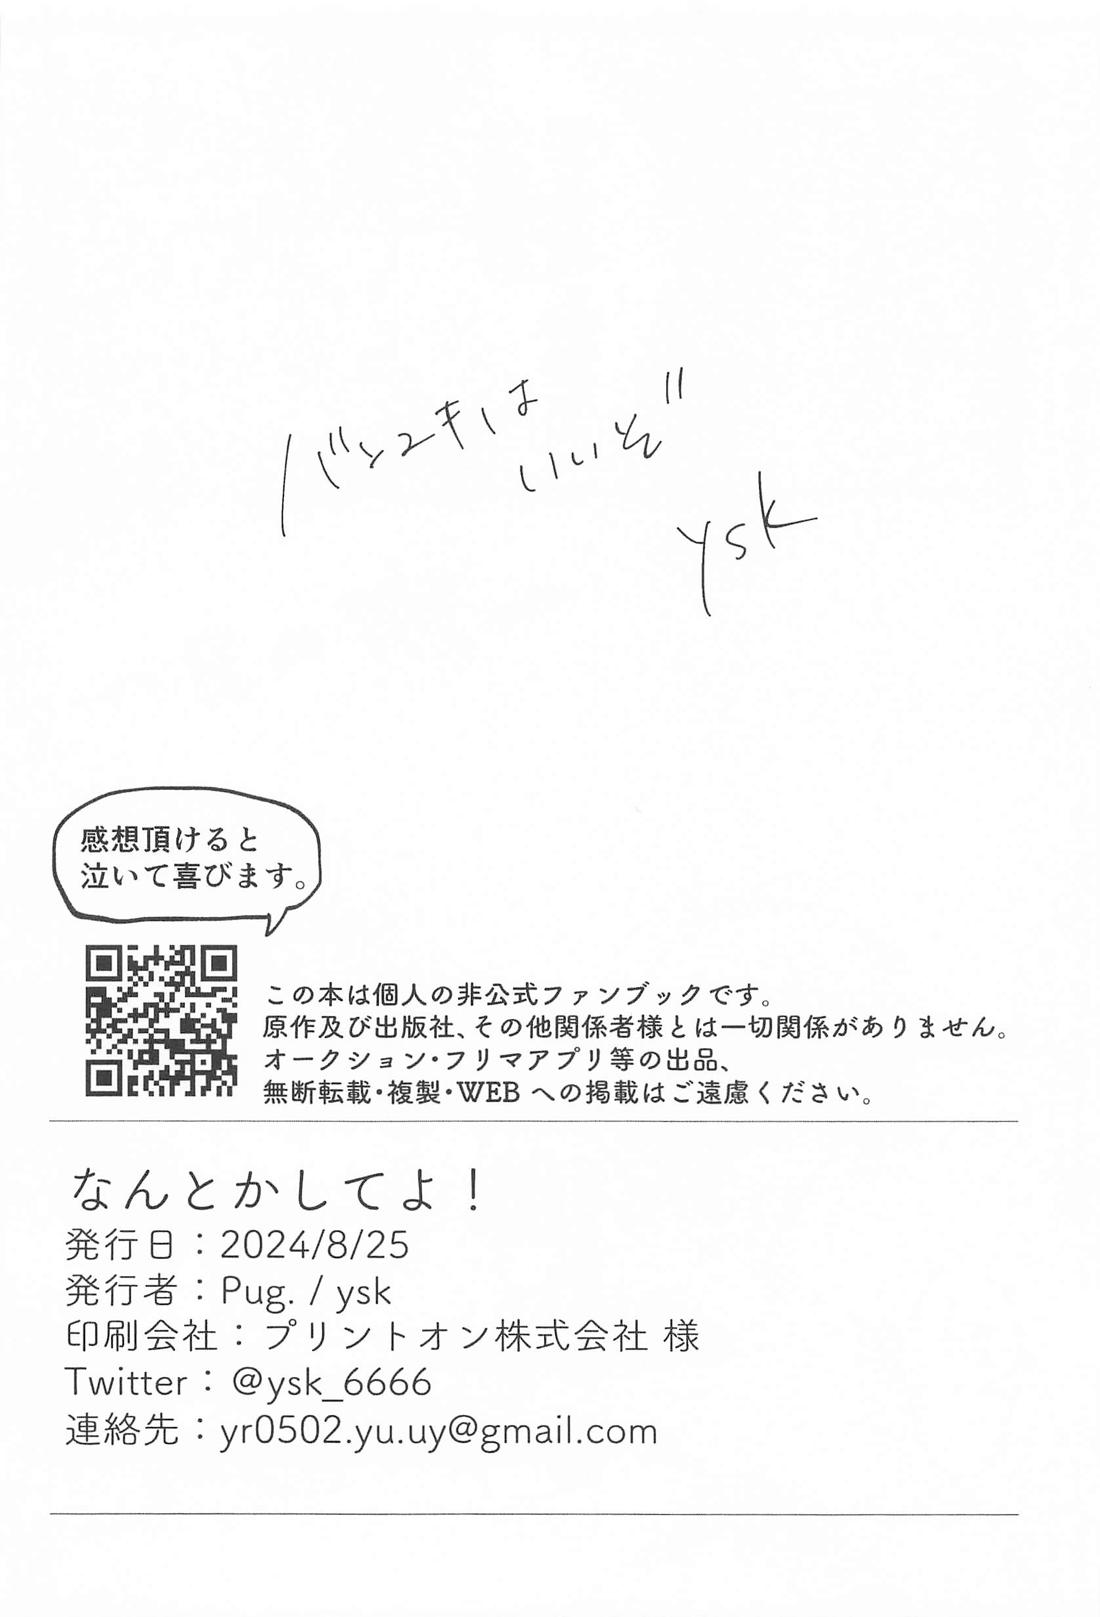 バンユキは
いいぞ
ysk
感想頂けると
泣いて喜びます。
この本は個人の非公式ファンブックです。
原作及び出版社、その他関係者様とは一切関係がありません。
オークション・フリマアプリ等の出品、
無断転載・複製・WEB への掲載はご遠慮ください。
なんとかしてよ！
発行日：2024/8/25
発行者：Pug. / ysk
印刷会社：プリントオン株式会社 様
Twitter：@ysk_6666
連絡先：yr0502.yu.uy@gmail.com